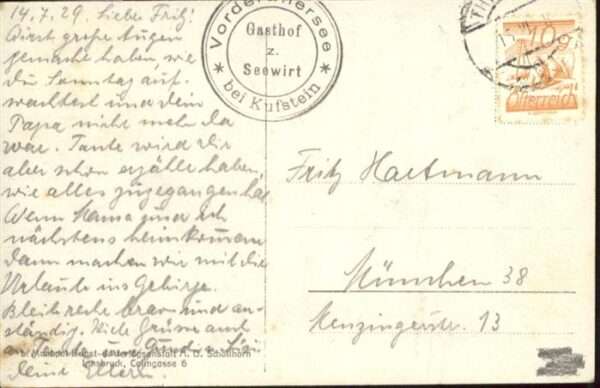 14.7.29. Lieber Fritz!
Wirst große Augen
gemacht haben wie
du Sonntag auf-
wachtest und dein
Papa nicht mehr da
war. Tante wird dir
aber schon erzählt haben,
wie alles zugegangen hat
Wenn Mama und ich
nächstens heimkommen
dann machen wir mit dir
Urlaub ins Gebirge.
Bleib recht brav und an-
ständig. Viele Grüsse auch
an Tante
deine Eltern.
Vorderthiersee
Gasthof
z.
Seewirt
bei Kufstein
10g
Österreich
Fritz Hartmann
München 38
Menzingerstr. 13
A. D. Schöllhorn
Innsbruck, Colingasse 6